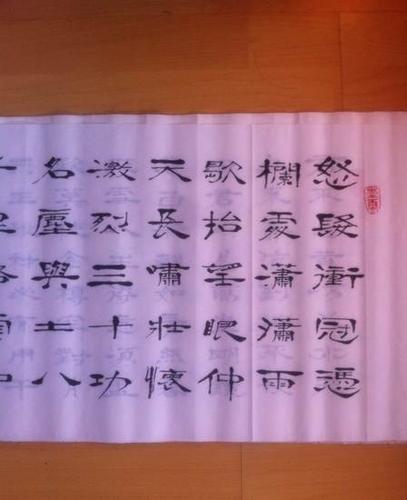 怒髮衝冠憑
欄處瀟瀟雨
歇抬望眼仰
天長嘯壯懷
激烈三十功
名塵與土八